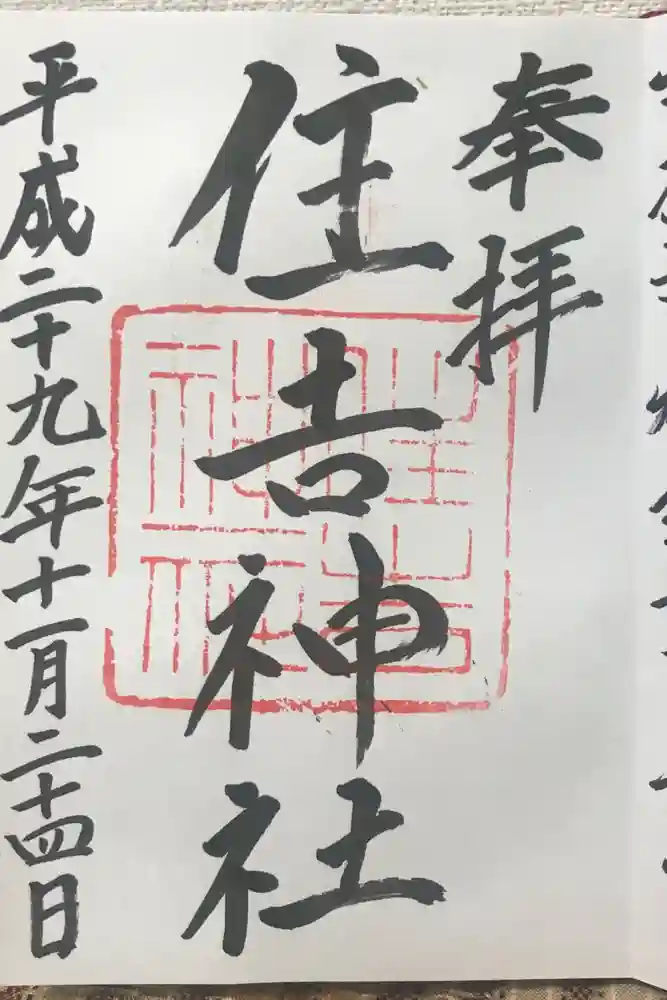 奉拝
住吉神社
住吉神社
平成二十九年十一月二十四日